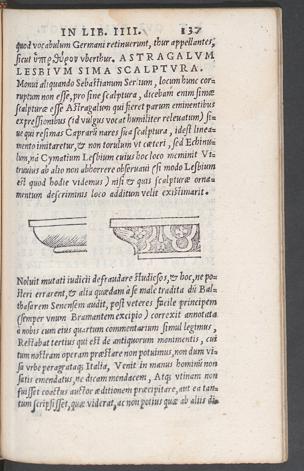 IN LIB. IIII. 137
quod vocabulum Germani retinuerunt, thur appellantes,
sicut ὑπὲρ θύρον vberthur. ASTRAGALVM
LESBIVM SIMA SCALPTVRA.
Monui aliquando Sebastianum Serlium, locum hunc cor-
ruptum non esse, pro sine scalptura, dicebam enim simæ
scalpturæ esse Astragalum qui fieret parum eminentibus
expressionibus (id vulgus vocat humiliter releuatum) si-
ue qui resimas Caprarū nares sua scalptura, idest linea-
mento imitaretur, & non torulum vt cæteri, sed Echinu-
lum, nā Cymatium Lesbium cuius hoc loco meminit Vi-
truuius ab alio non abhorrere obseruaui (si modo Lesbium
est quod hodie videmus) nisi & quis scalpturæ orna-
mentum descriminis loco additum velit existimarit.
Noluit mutati iudicii defraudare studiosos, & hoc, ne po-
steri errarent, & alia quædam à se male tradita dū Bal-
thasarem Senensem audit, post veteres facile principem
(semper vnum Bramantem excipio) correxit annotata
à nobis cum eius quartum commentarium simul legimus,
Restabat tertius qui est de antiquorum monimentis, cui
tum nostram operam præstare non potuimus, non dum vi-
sa vrbe peragrataq; Italia, Venit in manus hominū non
satis emendatus, ne dicam mendacem, Atq; vtinam non
fuisset coactus auctor æditionem præcipitare, aut ea tan-
tum scripsisset, quæ viderat, ac non potius quæ ab aliis di-